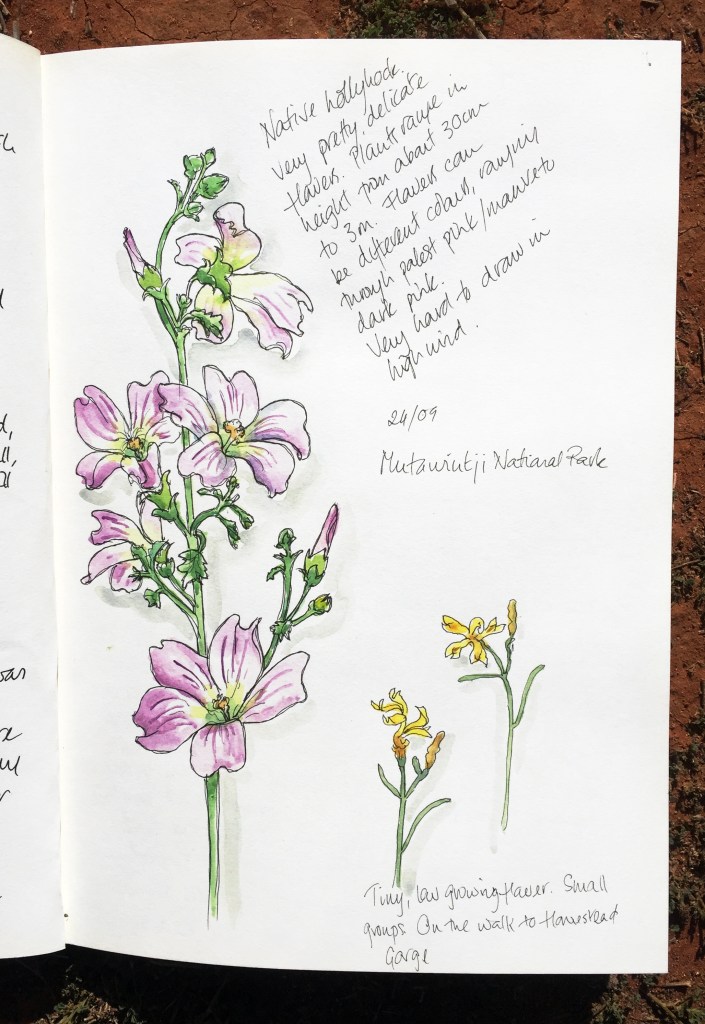 Native hollyhock.
Very pretty, delicate
flowers. Plants range in
height from about 30cm
to 3m. Flowers can
be different colours, ranging
through palest pink/mauve to
dark pink.
Very hard to draw in
high wind.
24/09
Mutawintji National Park
Tiny, low growing flower. Small
groups On the walk to Homestead
Gorge